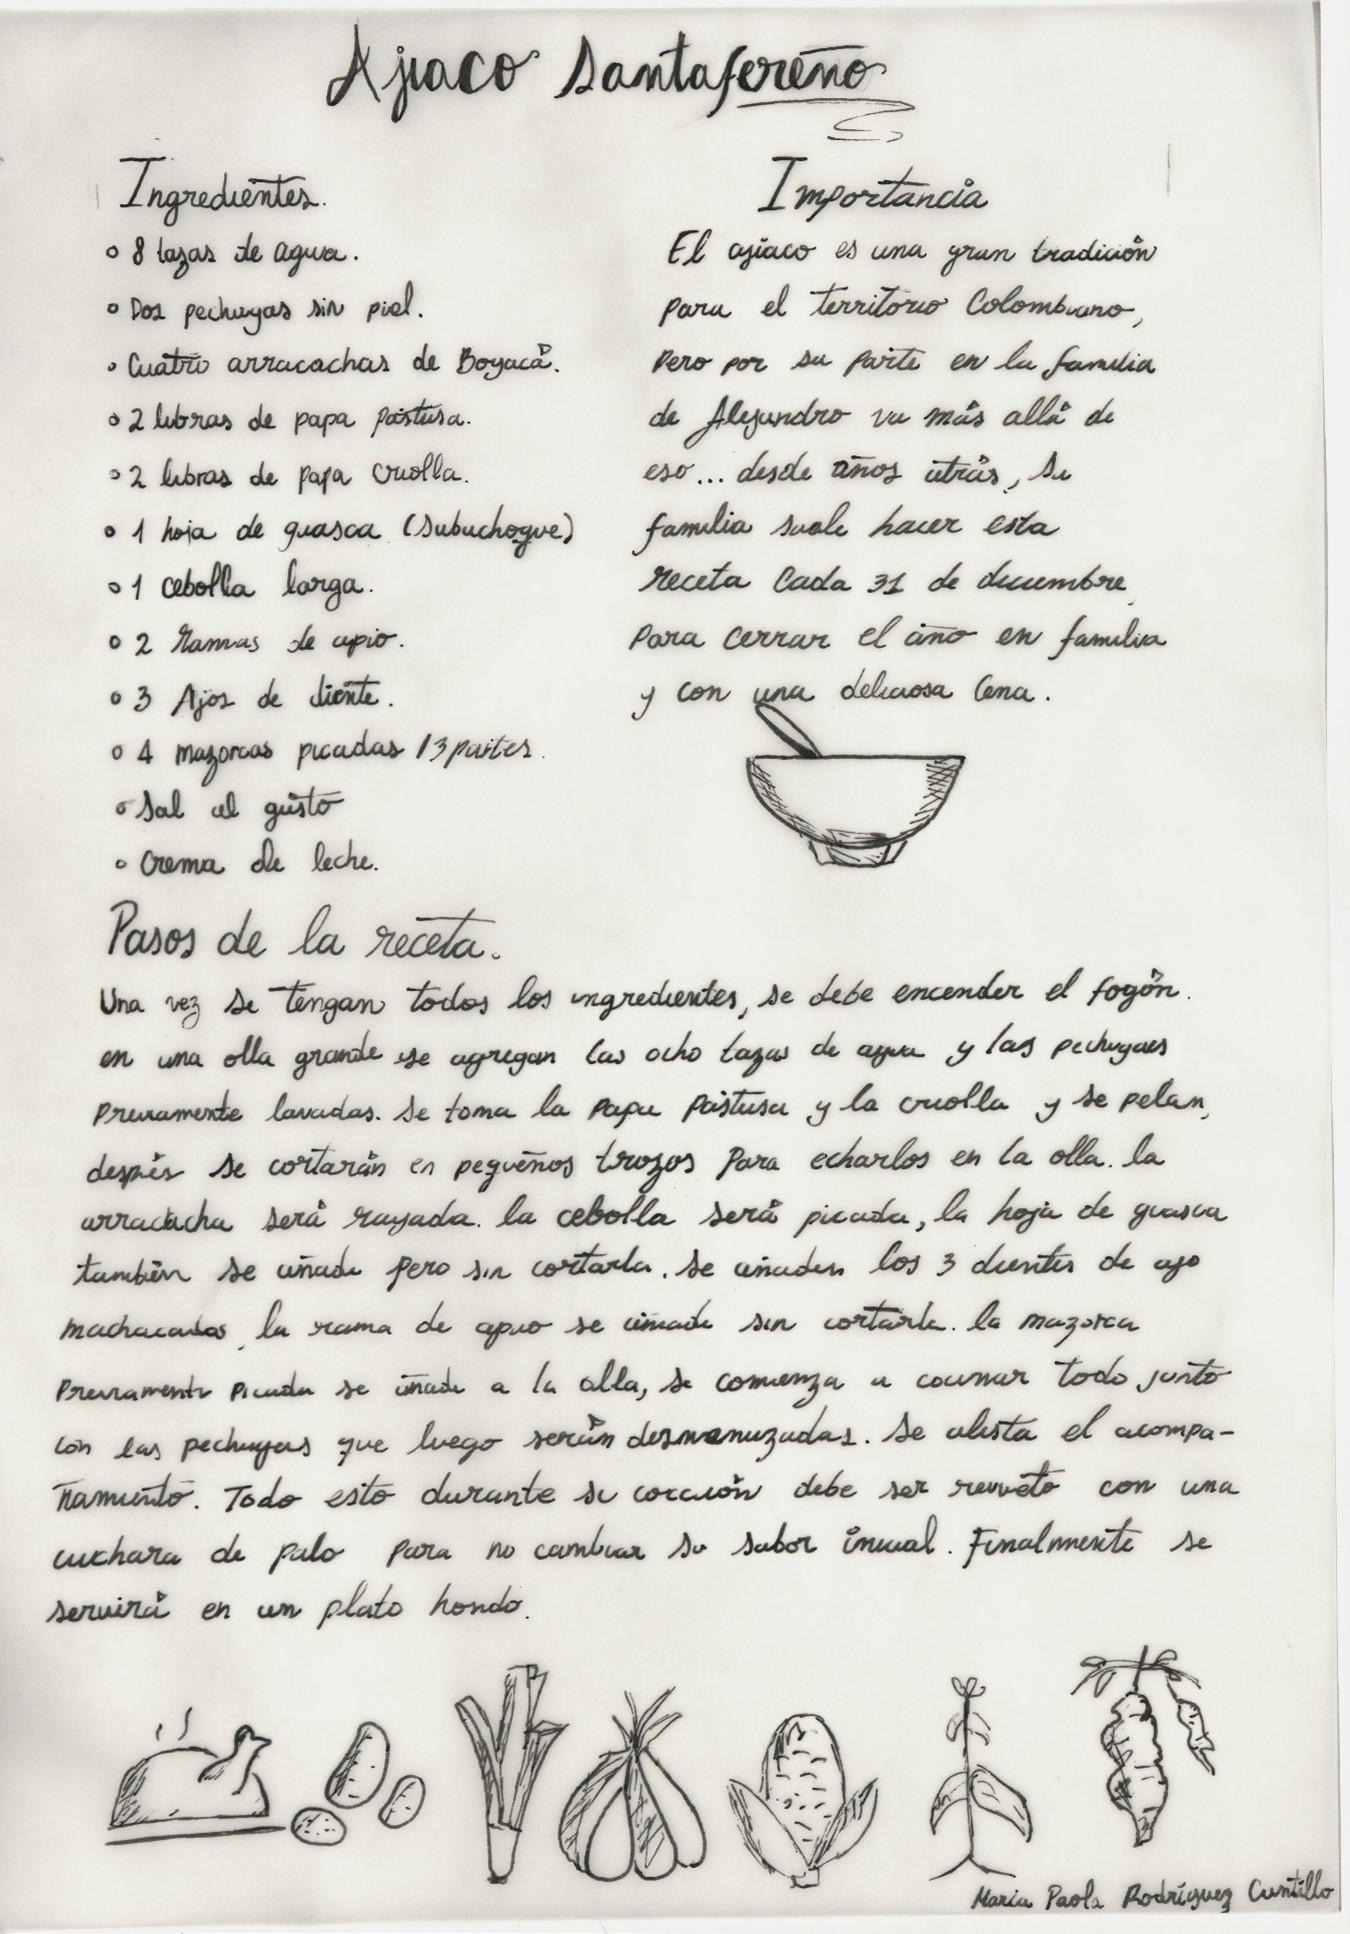 Ajiaco Santafereño
Ingredientes.
8 tazas de agua.
Dos pechugas sin piel.
Cuatro arracachas de Boyacá.
2 libras de papa pastusa.
2 libras de papa criolla.
1 hoja de guasca (Subuchoque)
1 cebolla larga.
2 Ramas de apio.
3 Ajos de diente.
4 mazorcas picadas /3 partes.
Sal al gusto
Crema de leche.
Importancia
El ajiaco es una gran tradición
para el territorio Colombiano,
pero por su parte en la familia
de Alejandro va más allá de
eso... desde años atrás, su
familia suele hacer esta
receta cada 31 de diciembre,
para cerrar el año en familia
y con una deliciosa cena.
Pasos de la receta.
Una vez se tengan todos los ingredientes, se debe encender el fogón.
en una olla grande se agregan las ocho tazas de agua y las pechugas
previamente lavadas. Se toma la papa pastusa y la criolla y se pelan,
después se cortarán en pequeños trozos para echarlos en la olla. la
arracacha será rayada. la cebolla será picada, la hoja de guasca
también se añade pero sin cortarla. se añaden los 3 dientes de ajo
machacados, la rama de apio se añade sin cortarla. la mazorca
previamente picada se añade a la olla, se comienza a cocinar todo junto
con las pechugas que luego serán desmenuzadas. Se alista el acompa-
ñamiento. Todo esto durante su cocción debe ser revuelto con una
cuchara de palo para no cambiar su sabor inicial. Finalmente se
servirá en un plato hondo.
Maria Paola Rodríguez Cantillo